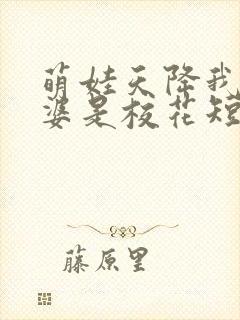 萌娃天降我
婆是校花短
藤原里